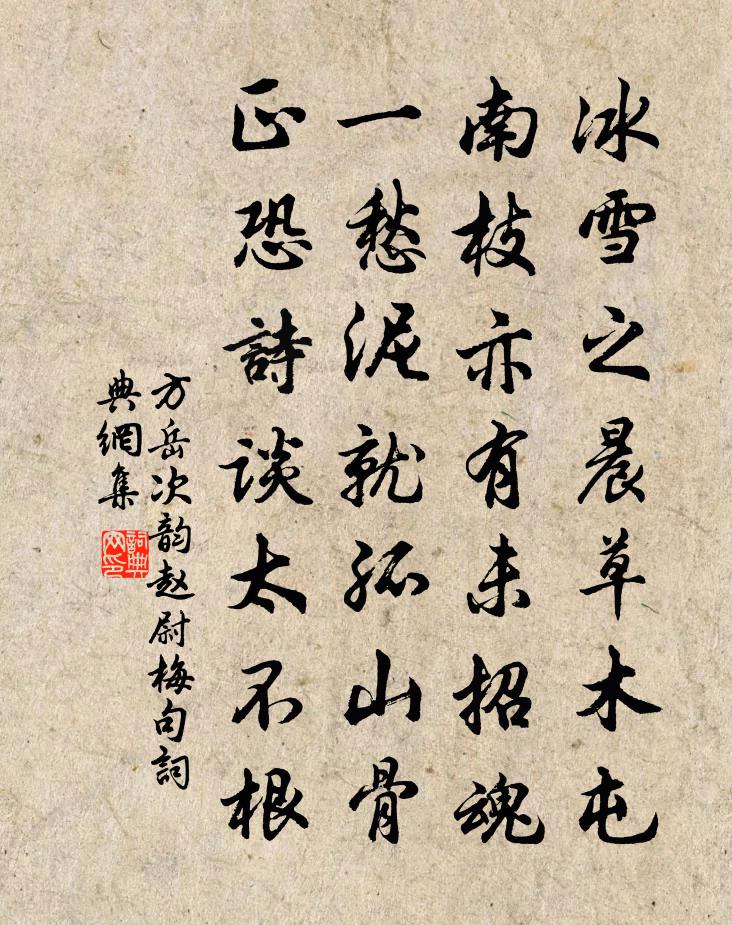 冰雪之晨草木屯
南枝亦有未招魂
一愁泥就孤山骨
正恐詩谈太不根
方岳次韵赵尉梅句詞
典網集
詞典
网印